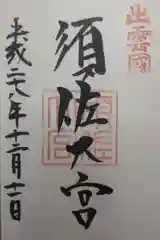 出雲國
須佐大宮
平成二九年十二月十二日